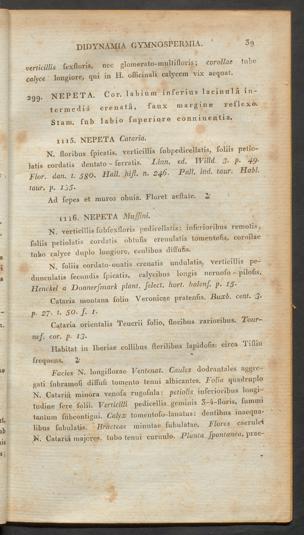 DIDYNAMIA GYMNOSPERMIA. 39
verticillis sexfloris, nec glomerato-multifloris; corollae tubo
calyce longiore, qui in H. officinali calycem vix aequat.
299. NEPETA. Cor. labium inferius lacinulâ in-
termediâ crenatâ, faux margine reflexo.
Stam. sub labio superiore conniventia.
1115. NEPETA Cataria.
N. floribus spicatis, verticillis subpedicellatis, foliis petio-
latis cordatis dentato-serratis. Linn. ed. Willd 3. p. 49.
Flor. dan. t. 580. Hall. hist. n. 246. Pall. ind. taur. Habl.
taur. p. 135.
Ad sepes et muros obuia. Floret aestate. ♃
1116. NEPETA Mussini.
N. verticillis subsexfloris pedicellatis: inferioribus remotis,
foliis petiolatis cordatis obtusis crenulatis tomentosis, corollae
tubo calyce duplo longiore, caulibus diffusis.
N. foliis cordato-ouatis crenatis undulatis, verticillis pe-
dunculatis secundis spicatis, calycibus longis neruoso-pilosis,
Henckel a Donnersmark plant. select. hort. halens. p. 15.
Cataria montana folio Veronicae pratensis. Buxb. cent. 3.
p. 27. t. 50. f. 1.
Cataria orientalis Teucrii folio, floribus rarioribus. Tour-
nef. cor. p. 13.
Habitat in Iberiae collibus sterilibus lapidosis: circa Tiflin
frequens. ♃
Facies N. longiflorae Ventenat. Caules dodrantales aggre-
gati subramosi diffusi tomento tenui albicantes. Folia quadruplo
N. Catariâ minora venosa rugosula: petiolis inferioribus longi-
tudine fere folii. Verticilli pedicellis geminis 3-4-floris, summi
tantum subcontigui. Calyx tomentoso-lanatus: dentibus inaequa-
libus subulatis. Bracteae minutae subulatae. Flores coerulei
N. Catariâ majores, tubo tenui curuulo. Planta spontanea, prae-